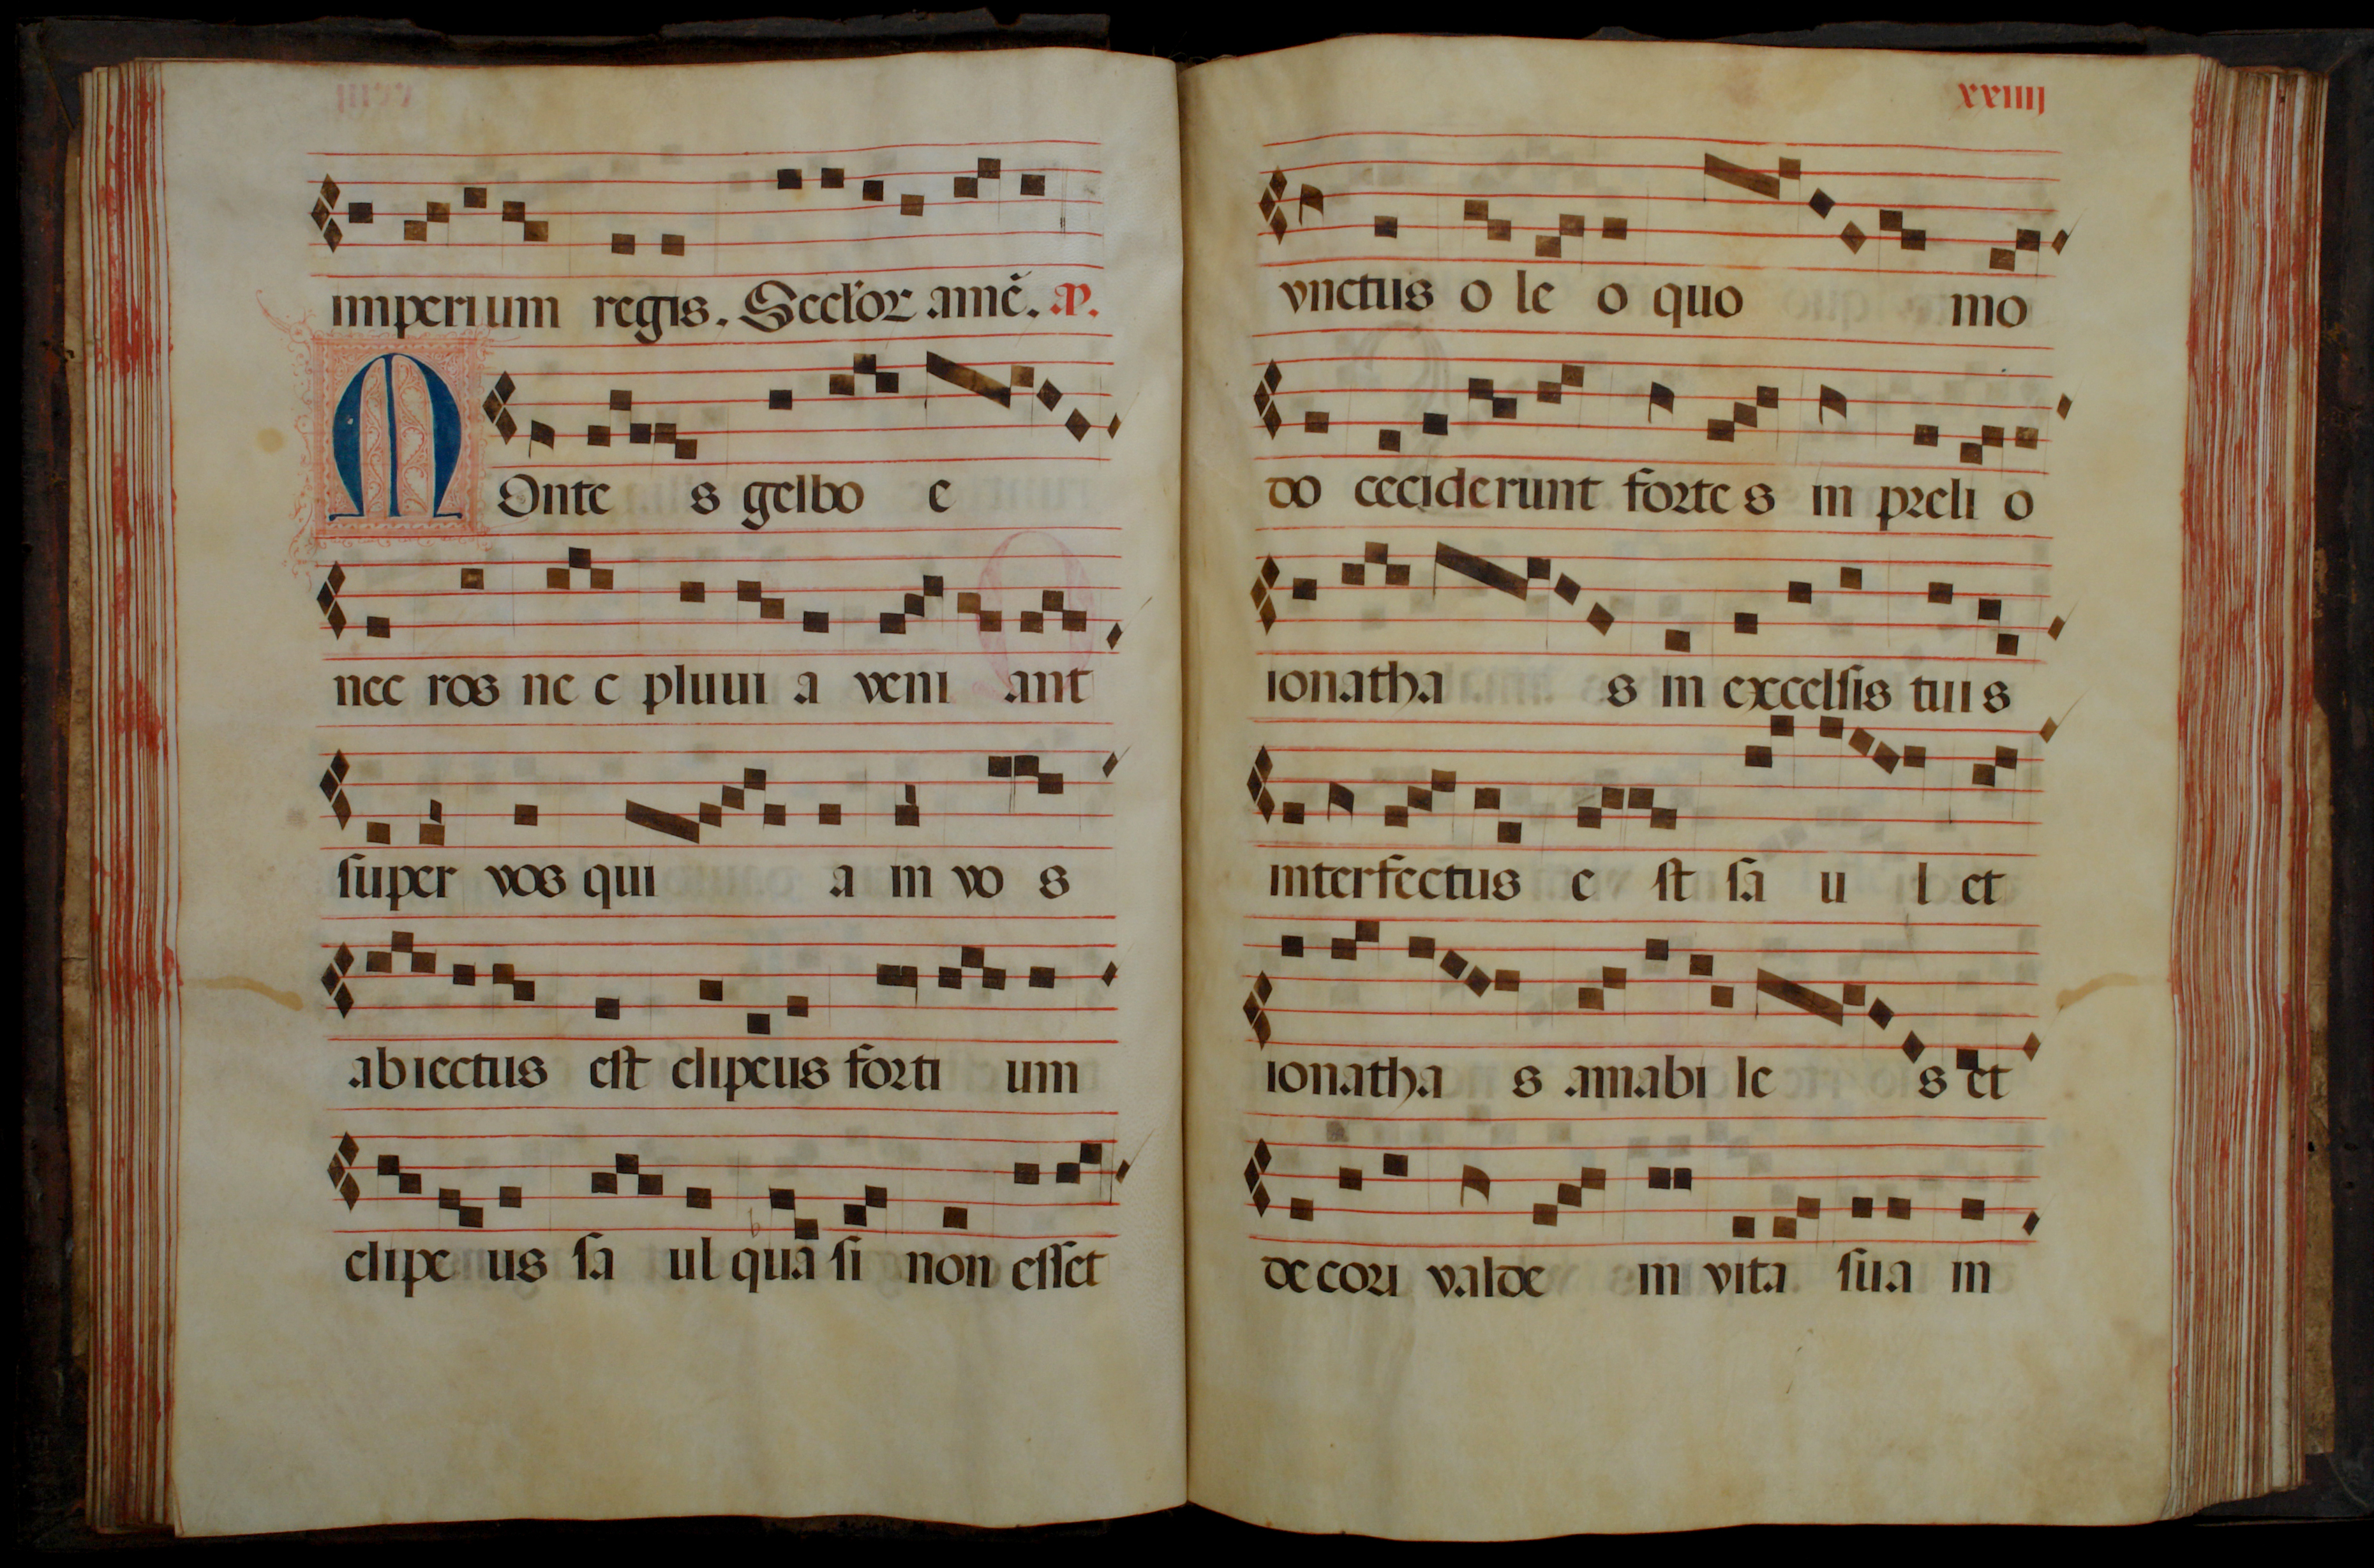 imperium regis. Seclor amē. ap.
MOnte s gelboe
nec ros ne c pluui a veni ant
super vos qui a in vo s
abiectus est clipeus forti um
clipe us sa ul qua si non esset
xxiiij
vnctus o le o quo mo
do ceciderunt forte s in preli o
ionatha s in excelsis tuis
interfectus e st sa u l et
ionatha s amabi le s et
decori valde in vita sua in